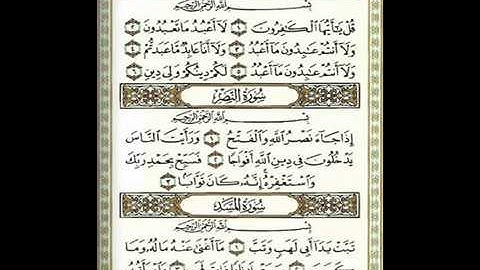 بِسْمِ اللَّهِ الرَّحْمَٰنِ الرَّحِيمِ
قُلْ يَا أَيُّهَا الْكَافِرُونَ ١ لَا أَعْبُدُ مَا تَعْبُدُونَ ٢
وَلَا أَنتُمْ عَابِدُونَ مَا أَعْبُدُ ٣ وَلَا أَنَا عَابِدٌ مَّا عَبَدتُّمْ ٤
وَلَا أَنتُمْ عَابِدُونَ مَا أَعْبُدُ ٥ لَكُمْ دِينُكُمْ وَلِيَ دِينِ ٦
سُورَةُ النَّصْرِ
بِسْمِ اللَّهِ الرَّحْمَٰنِ الرَّحِيمِ
إِذَا جَاءَ نَصْرُ اللَّهِ وَالْفَتْحُ ١ وَرَأَيْتَ النَّاسَ
يَدْخُلُونَ فِي دِينِ اللَّهِ أَفْوَاجًا ٢ فَسَبِّحْ بِحَمْدِ رَبِّكَ
وَاسْتَغْفِرْهُ إِنَّهُ كَانَ تَوَّابًا ٣
سُورَةُ الْمَسَدِ
بِسْمِ اللَّهِ الرَّحْمَٰنِ الرَّحِيمِ
تَبَّتْ يَدَا أَبِي لَهَبٍ وَتَبَّ ١ مَا أَغْنَىٰ عَنْهُ مَالُهُ وَمَا